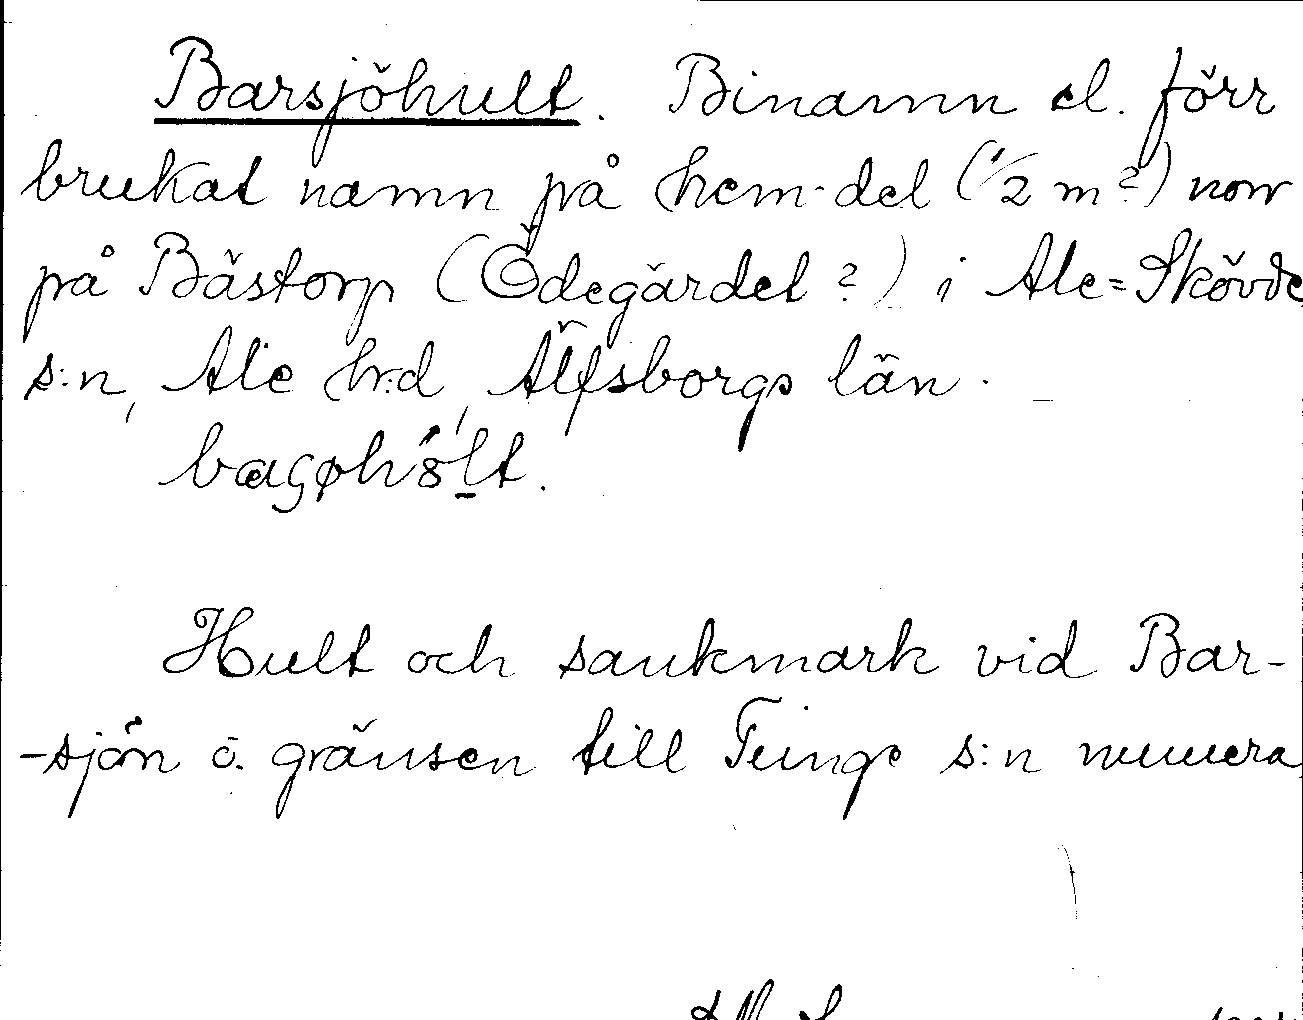 Barsjöhult. Binamn el. förr
brukat namn på hem-del (1/2 m?) norr
på Bästorp (Ödegärdet?) i Ale=Skövde
s:n, Ale hrd, Älfsborgs län.
Hult och sankmark vid Bar-
-sjön ö. gränsen till Tunge s:n numera